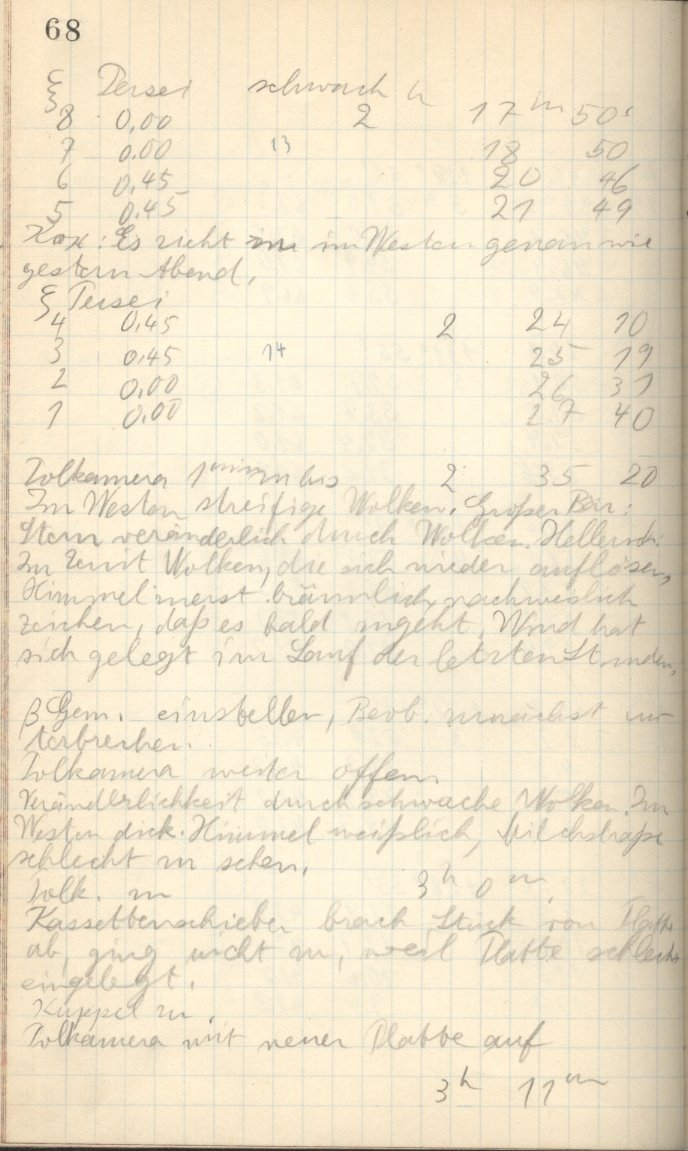 68
ξ Persei schwach h
8 0,00 2 17m 50s
7 0.00 13 18 50
6 0,45 20 46
5 0.45 21 49
: Es zieht im Westen genau wie
gestern Abend.
ξ Persei
4 0.45 2 24 10
3 0,45 14 25 19
2 0,00 26 31
1 0.00 27 40
Polkamera bis 2 35 20
Im Westen streifige Wolken. Großer Bär:
Stern veränderlich durch Wolken.
Im Zenit Wolken, die sich wieder auflösen,
Himmel bräunlich
Zeichen, daß es bald zugeht. Wind hat
sich gelegt im Lauf der letzten Stunden.
β Gem. einstellen, Beob. zunächst un
terbrechen.
Polkamera weiter offen.
Veränderlichkeit durch schwache Wolken. Im
Westen dick. Himmel weißlich, Milchstraße
schlecht zu sehen.
Polk. zu 3h 0m
Kassettenschieber brach Stück von Platte
ab, ging nicht zu, weil Platte schlecht
eingelegt.
Kuppel zu.
Polkamera mit neuer Platte auf
3h 11m